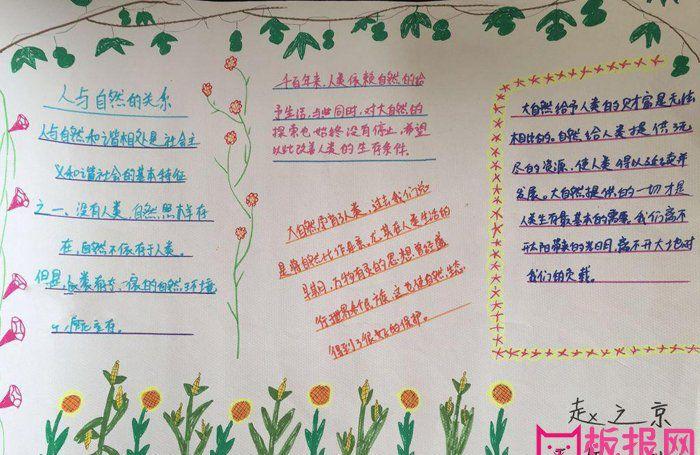 人与自然的关系
人与自然和谐相处是社会主
义和谐社会的基本特征
之一、没有人类,自然照样存
在,自然不依存于人类。
但是,人类
的自然环境
千百年来,人类依赖自然的给
予生活,与此同时,对大自然的
探索也始终没有停止,希望
以此改善人类的生存条件。
大自然孕育了人类,过去我们总
是将自然比作母亲,尤其在人类生活的
早期,万物有灵的思想曾经盛
行世界各个民族,这也使自然生态
得到了很好的保护。
大自然给予人类的财富是无法
相比的。自然给人类提供了无
尽的资源,使人类得以延续并
发展。大自然提供的一切才是
人类生存最基本的需要,我们离不
开太阳带来的光明,离不开大地对
我们的负载。
赵之京
板报网